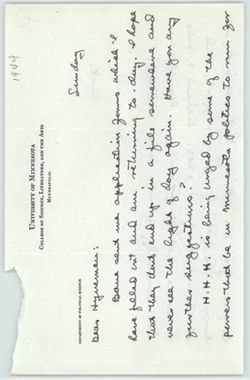 1954
UNIVERSITY OF MINNESOTA
COLLEGE OF SCIENCE, LITERATURE, AND THE ARTS
MINNEAPOLIS
DEPARTMENT OF POLITICAL SCIENCE
Sunday
Dear Hyneman:
Bane sent me application forms which I
have filled out and am returning to day. I hope
that they dont end up in a file somewhere and
never see the light of day again. Have you any
further suggestions?
H.H.H. is being urged by some of the
powers that be in Minnesota politics to run for